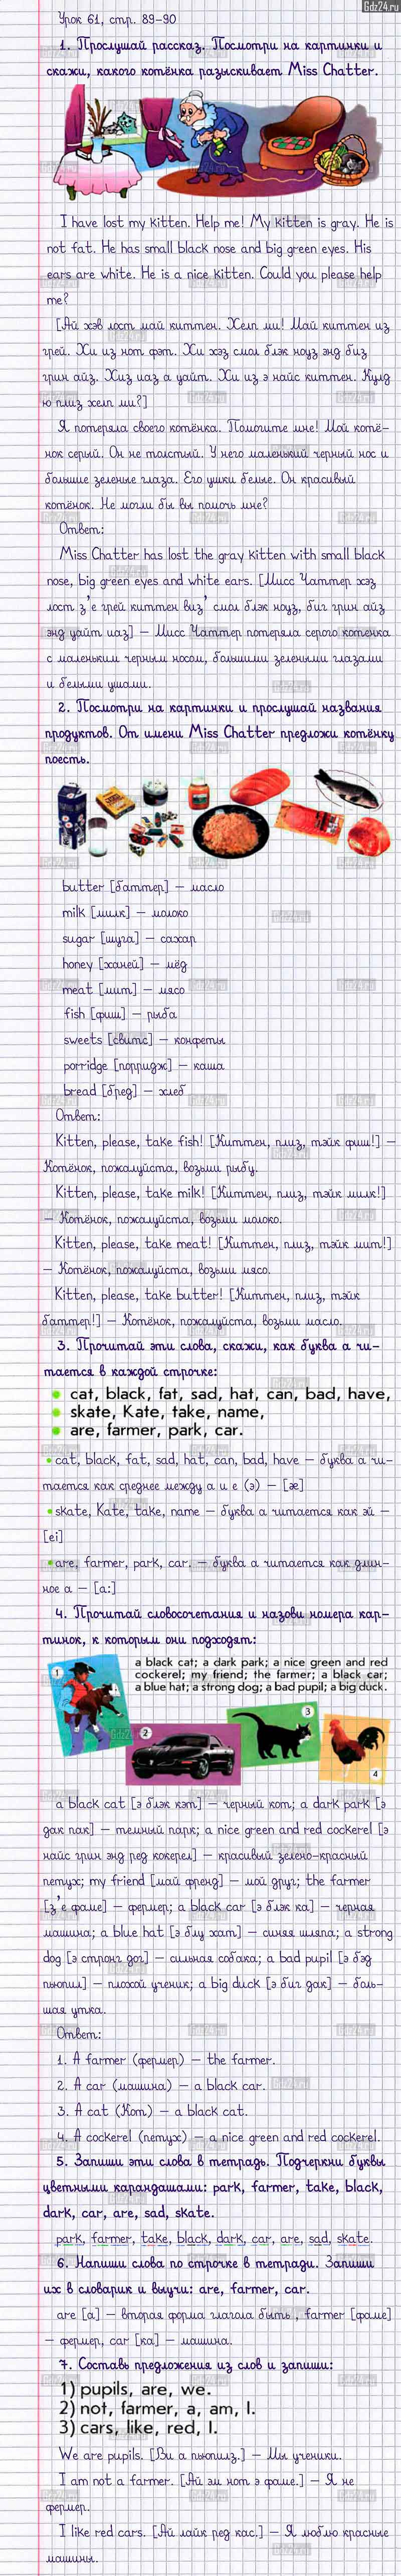 Gdz24.ru
Урок 61, стр. 89-90
1. Прослушай рассказ. Посмотри на картинки и
скажи, какого котёнка разыскивает Miss Chatter.
I have lost my kitten. Help me! My kitten is gray. He is
not fat. He has small black nose and big green eyes. His
ears are white. He is a nice kitten. Could you please help
me?
[Ай хэв лост май киттен. Хелп ми! Май киттен из
грей. Хи из нот фэт. Хи хэз смол блэк ноуз энд биг
грин айз. Хиз иаз а уайт. Хи из э найс киттен. Кулд
ю плиз хелп ми?]
Я потеряла своего котёнка. Помогите мне! Мой котё-
нок серый. Он не толстый. У него маленький черный нос и
большие зеленые глаза. Его ушки белые. Он красивый
котёнок. Не могли бы вы помочь мне?
Ответ:
Miss Chatter has lost the gray kitten with small black
nose, big green eyes and white ears. [Мисс Чаттер хэз
лост з'е грей киттен виз' смол блэк ноуз, биг грин айз
энд уайт иаз] – Мисс Чаттер потеряла серого котенка
с маленьким черным носом, большими зелеными глазами
и белыми ушами.
2. Посмотри на картинки и прослушай названия
продуктов. От имени Miss Chatter предложи котёнку
поесть.
butter [баттер] – масло
milk [милк] – молоко
sugar [шуга] – сахар
honey [ханей] – мёд
meat [мит] – мясо
fish [фиш] – рыба
sweets [свитс] – конфеты
porridge [порридж] – каша
bread [бред] – хлеб
Ответ:
Kitten, please, take fish! [Киттен, плиз, тэйк фиш!] –
Котёнок, пожалуйста, возьми рыбу.
Kitten, please, take milk! [Киттен, плиз, тэйк милк!]
– Котёнок, пожалуйста, возьми молоко.
Kitten, please, take meat! [Киттен, плиз, тэйк мит!]
– Котёнок, пожалуйста, возьми мясо.
Kitten, please, take butter! [Киттен, плиз, тэйк
баттер!] – Котёнок, пожалуйста, возьми масло.
3. Прочитай эти слова, скажи, как буква а чи-
тается в каждой строчке:
cat, black, fat, sad, hat, can, bad, have,
skate, Kate, take, name,
are, farmer, park, car.
cat, black, fat, sad, hat, can, bad, have – буква а чи-
тается как среднее между а и е (э) – [æ]
skate, Kate, take, name – буква а читается как эй –
[ei]
are, farmer, park, car. – буква а читается как длин-
ное а – [a:]
4. Прочитай словосочетания и назови номера кар-
тинок, к которым они подходят:
a black cat; a dark park; a nice green and red
cockerel; my friend; the farmer; a black car;
a blue hat; a strong dog; a bad pupil; a big duck.
1
2
3
4
a black cat [э блэк кэт] – черный кот; a dark park [э
дак пак] – темный парк; a nice green and red cockerel [э
найс грин энд ред кокерел] – красивый зелено-красный
петух; my friend [май френд] – мой друг; the farmer
[з'е фаме] – фермер; a black car [э блэк ка] – черная
машина; a blue hat [э блу хат] – синяя шляпа; a strong
dog [э стронг дог] – сильная собака; a bad pupil [э бэд
пьюпил] – плохой ученик; a big duck [э биг дак] – боль-
шая утка.
Ответ:
1. A farmer (фермер) – the farmer.
2. A car (машина) – a black car.
3. A cat (Кот) – a black cat.
4. A cockerel (петух) – a nice green and red cockerel.
5. Запиши эти слова в тетрадь. Подчеркни буквы
цветными карандашами: park, farmer, take, black,
dark, car, are, sad, skate.
park, farmer, take, black, dark, car, are, sad, skate.
6. Напиши слова по строчке в тетради. Запиши
их в словарик и выучи: are, farmer, car.
are [а] – вторая форма глагола быть , farmer [фаме]
– фермер, car [ка] – машина.
7. Составь предложения из слов и запиши:
1) pupils, are, we.
2) not, farmer, a, am, I.
3) cars, like, red, I.
We are pupils. [Ви а пьюпилз.] – Мы ученики.
I am not a farmer. [Ай эм нот э фаме.] – Я не
фермер.
I like red cars. [Ай лайк ред кас.] – Я люблю красные
машины.